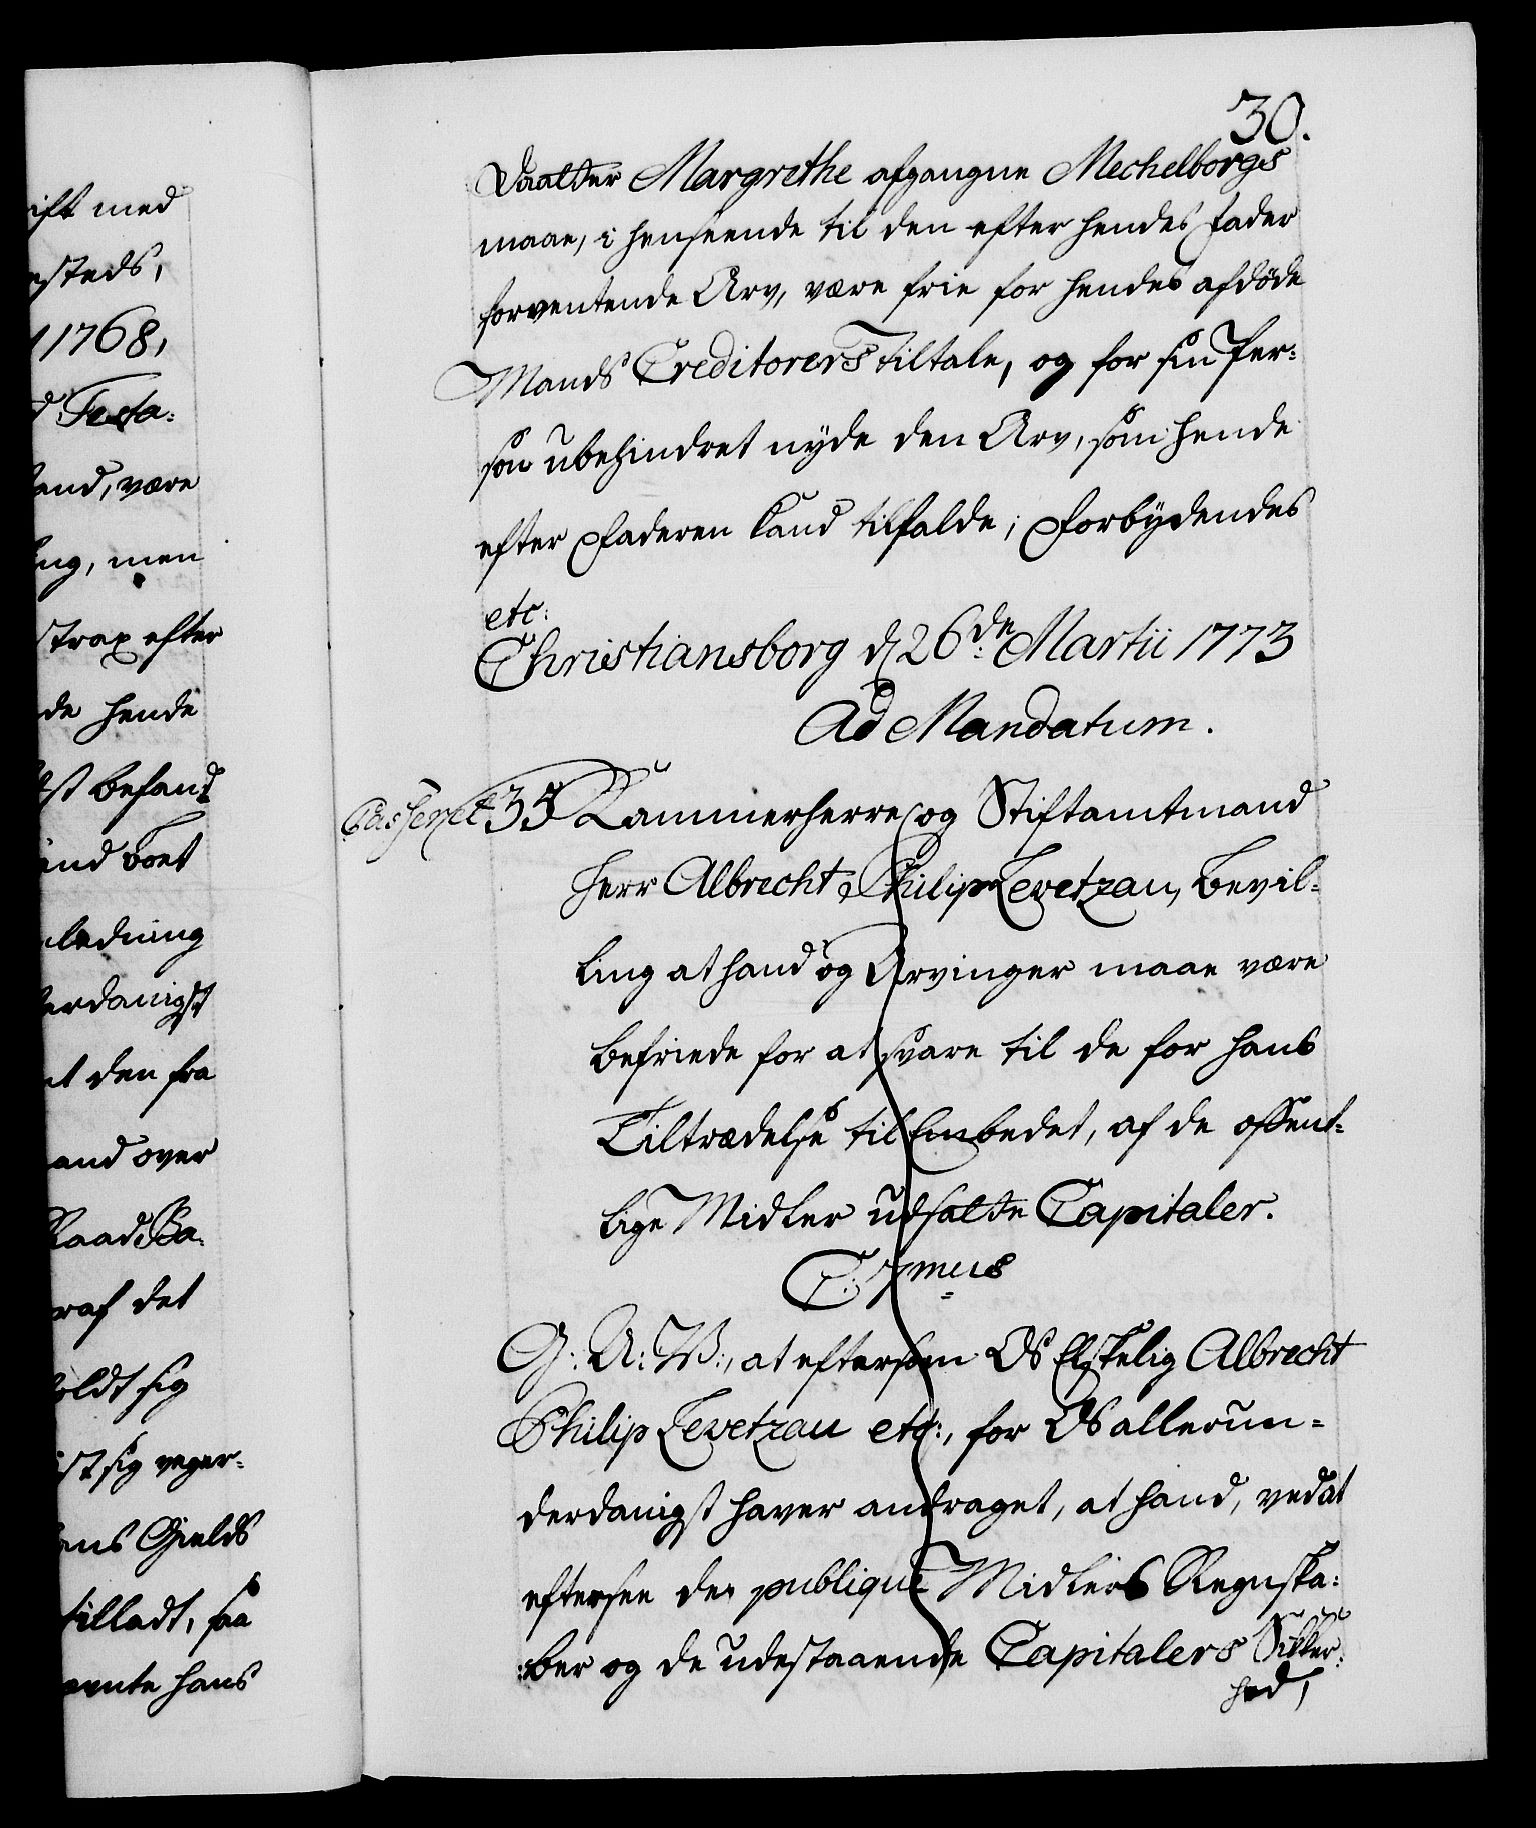 30.
Daatter Margrethe afgangne Mechelborgs
maae, i henseende til den efter hendes Fader
forventende Arv, være frie for hendes afdøde
Mands Creditorers Tiltale, og for sin Per-
son ubehindret nyde den Arv, som hende
efter Faderen kand tilfalde; Forbydendes
etc:
Christiansborg d 26de Martii 1773
Ad Mandatum.
Casseret 35 Kammerherre og Stiftamtmand
Herr Albrecht Philip Levetzau, Bevil-
ling at hand og Arvinger maae være
befriede for at svare til de for hans
Tiltrædelse til Embedet, af de offent-
lige Midler udsatte Capitaler.
C: 7mus
G: A: V:, at eftersom Os Elskelig Albrecht
Philip Levetzau etc:, for Os allerun-
derdanigst haver andraget, at hand, ved at
eftersee de publique Midlers Regnska-
ber og de udestaaende Capitalers Sikker-
hed,
ift med
steds,
1768,
Testa-
and, være
ng, men
strax efter
de hende
st befandt
end Boet
ledning
erdanigst
t den fra
and over
Raad Ba-
raf det
oldt sig
st sig veger-
ans Gields
tilladt, saa
ente hans